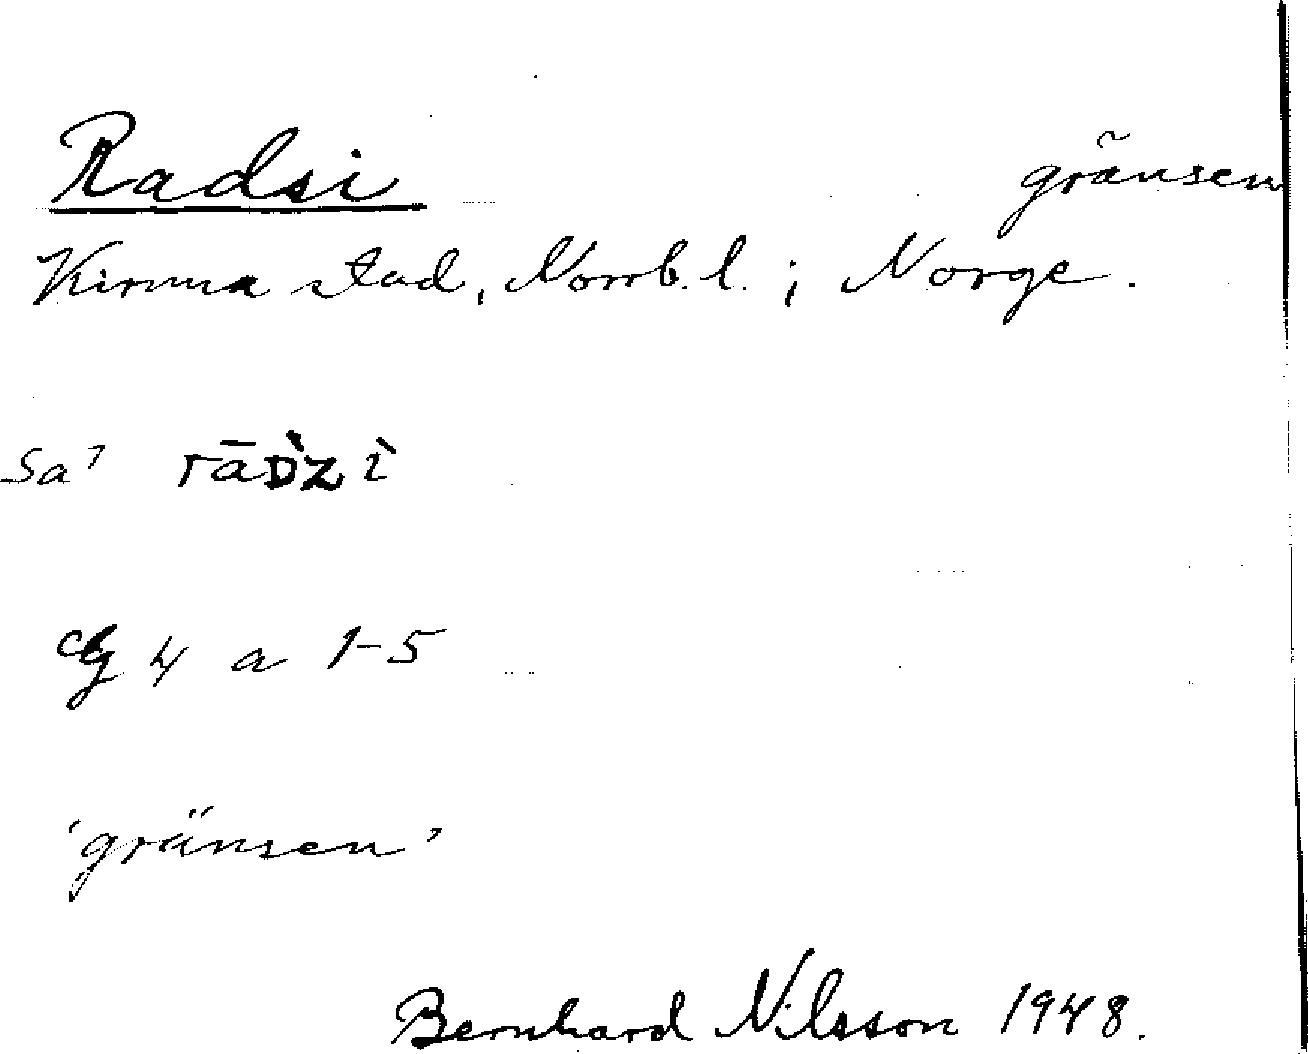 Radsi gränsen
Kiruna stad, Norrb. l. ; Norge.
Sa' rāᴅ̀z ì
cg 4 a 1-5
'gränsen'
Bernhard Nilsson 1948.